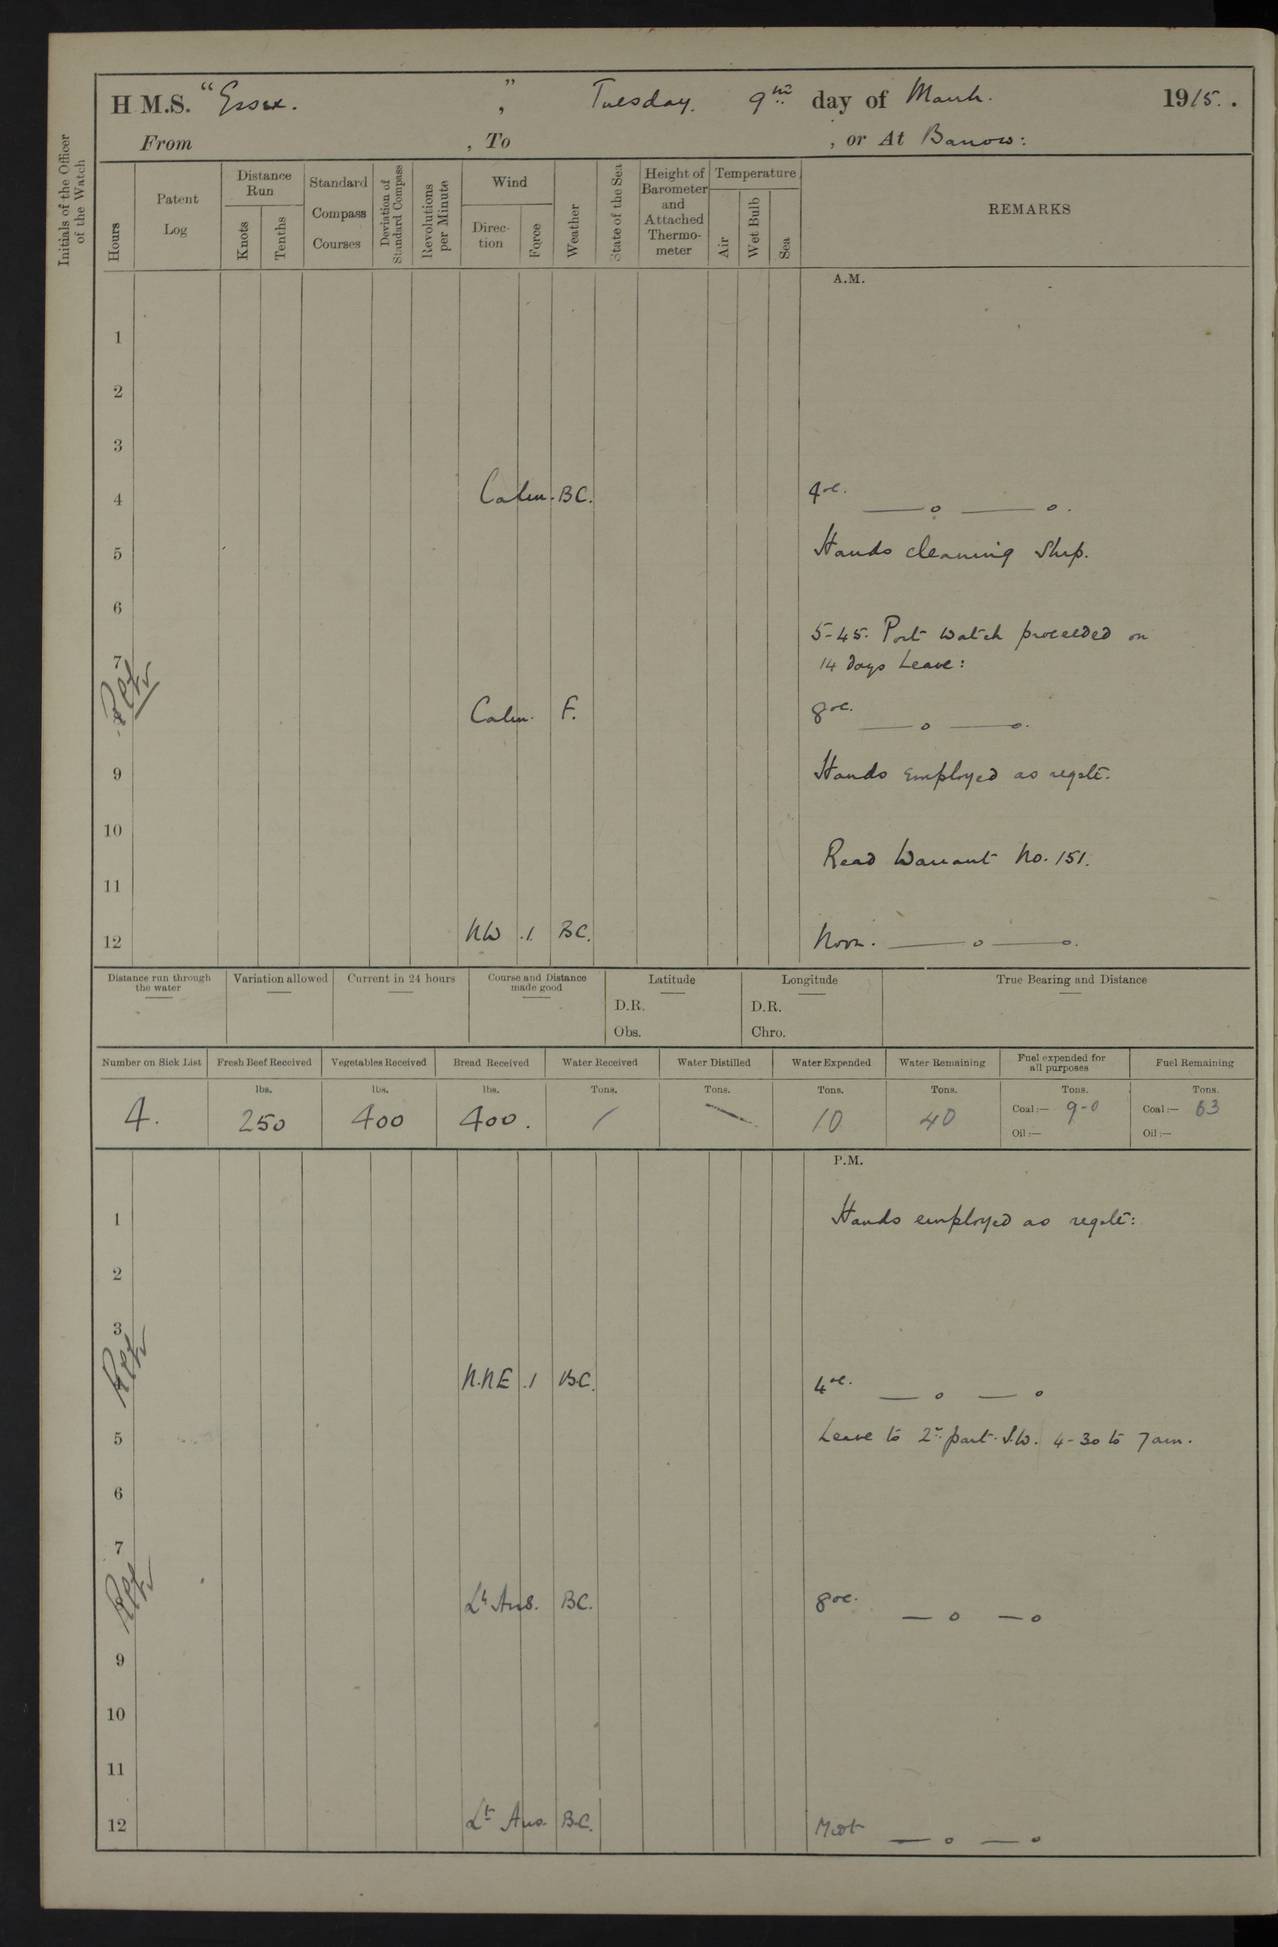 H M.S. "Essex. " , Tuesday. 9th day of March. 1915. .
From , To , or At Barrow:
Initials of the Officer of the Watch
Hours
Patent Log
Distance Run
Knots
Tenths
Standard Compass Courses
Deviation of Standard Compass
Revolutions per Minute
Wind
Direction
Force
Weather
State of the Sea
Height of Barometer and Attached Thermometer
Temperature
Air
Wet Bulb
Sea
REMARKS
A.M.
1
2
3
4 Calm. BC. 4
5 Hands cleaning Ship.
6
5-45. Port watch proceeded on
7 14 days Leave:
Calm. F. 8
9 Hands employed as reqte.
10
Read Warrant No. 151.
11
12 NW .1. BC. Noon.
Distance run through the water
Variation allowed
Current in 24 hours
Course and Distance made good
Latitude
D.R.
Obs.
Longitude
D.R.
Chro.
True Bearing and Distance
Number on Sick List Fresh Beef Received Vegetables Received Bread Received Water Received Water Distilled Water Expended Water Remaining Fuel expended for all purposes Fuel Remaining
lbs. lbs. lbs. Tons. Tons. Tons. Tons. Tons. Tons.
4. 250 400 400. / — 10 40 Coal:— 9-0 Coal:— 63
Oil:— Oil:—
P.M.
1 Hands employed as reqte:
2
3
N.NE .1 BC. 4
5 Leave to 2nd part. S.W. 4-30 to 7am.
6
7
Lt Airs. BC. 8
9
10
11
12 Lt Airs. BC. Mdt